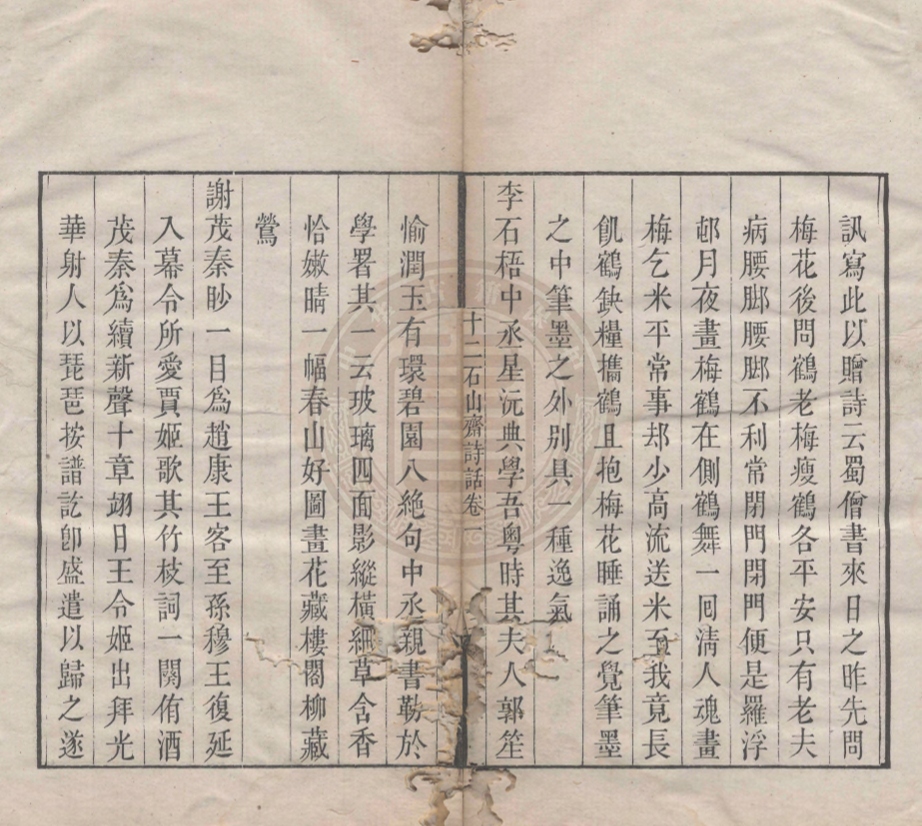 訊寫此以贈詩云蜀僧書來日之昨先問
梅花後問鶴老梅瘦鶴各平安只有老夫
病腰腳腰腳不利常閉門閉門便是羅浮
邨月夜畫梅鶴在側鶴舞一囘淸人魂畫
梅乞米平常事却少高流送米至我竟長
飢鶴缺糧攜鶴且抱梅花睡誦之覺筆墨
之中筆墨之外别具一種逸氣
李石梧中丞星沅典學吾粵時其夫人郭笙
十二石山齋詩話卷一
愉潤玉有環碧園八絶句中丞親書勒於
學署其一云玻璃四面影縱橫細草含香
恰嫩晴一幅春山好圖畫花藏樓閣柳藏
鶯
謝茂秦眇一目爲趙康王客至孫穆王復延
入幕令所愛賈姬歌其竹枝詞一闋侑酒
茂秦爲續新聲十章翊日王令姬出拜光
華射人以琵琶按譜訖卽盛遣以歸之遂